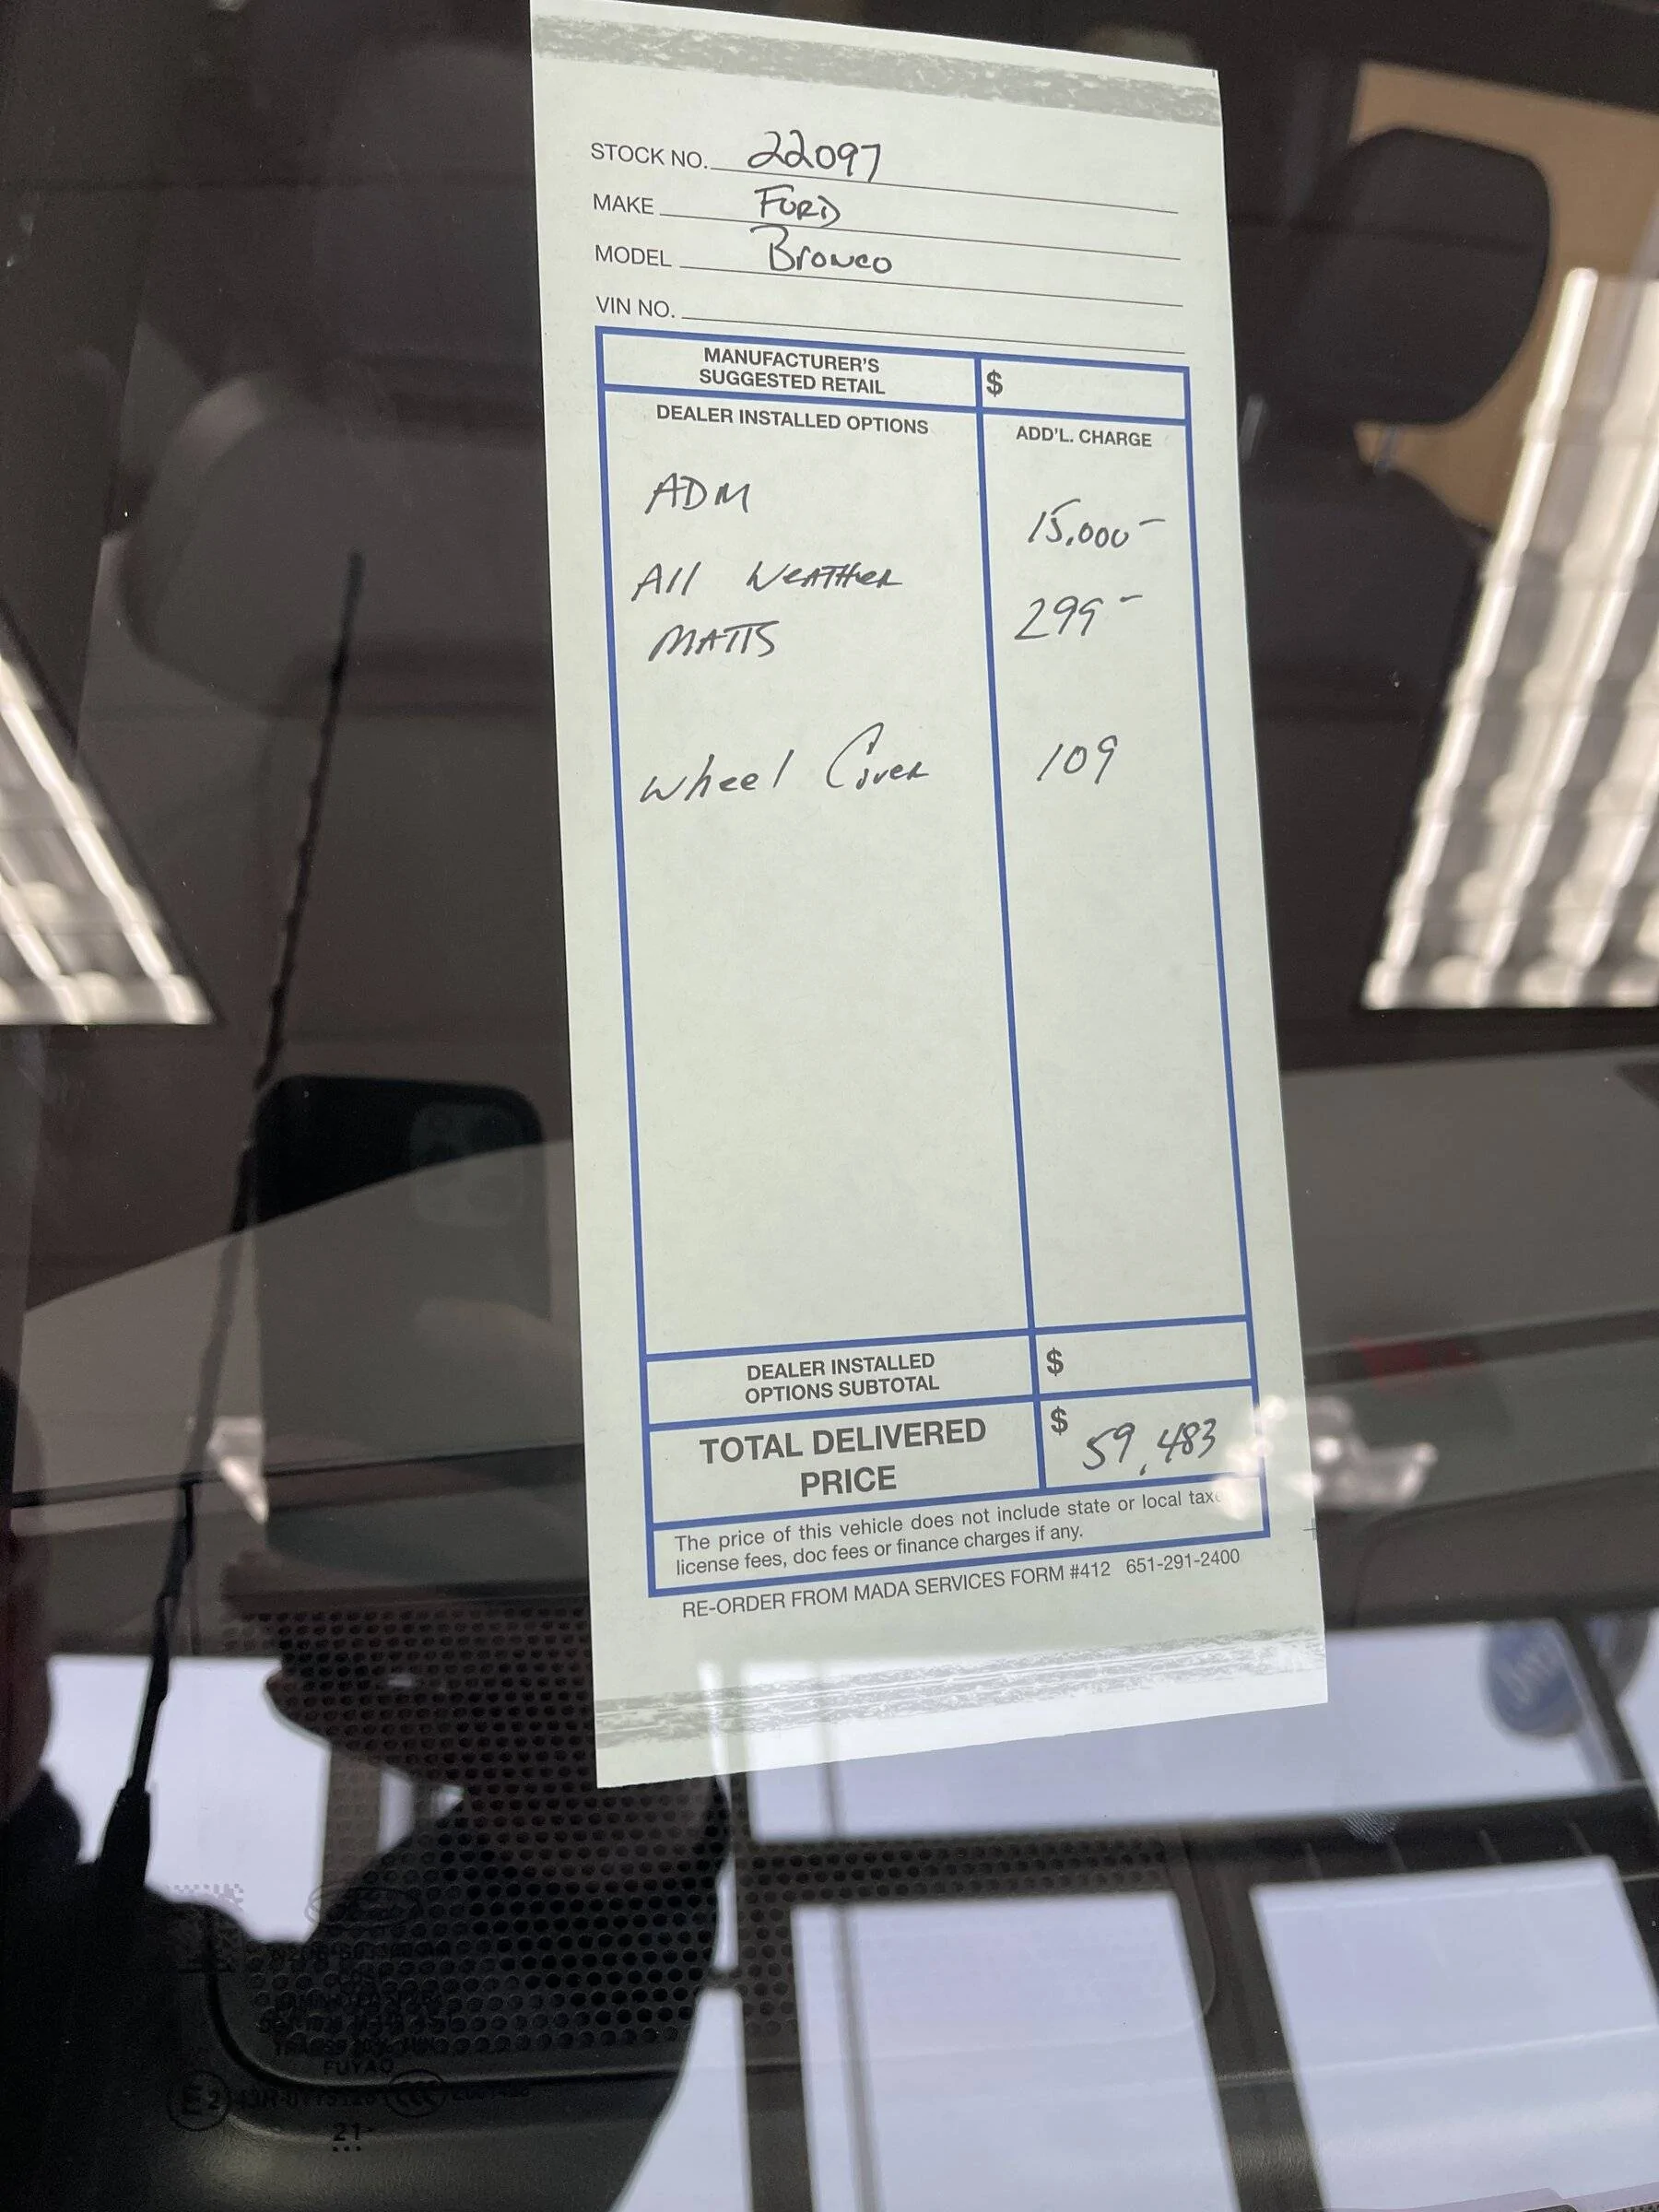 STOCK NO. 22097
MAKE FORD
MODEL Bronco
VIN NO.
MANUFACTURER'S
SUGGESTED RETAIL $
DEALER INSTALLED OPTIONS ADD'L. CHARGE
ADM 15,000-
All WeATHer 299-
MATTS
Wheel Cover 109
DEALER INSTALLED
OPTIONS SUBTOTAL $
TOTAL DELIVERED
PRICE $ 59,483
The price of this vehicle does not include state or local taxe
license fees, doc fees or finance charges if any.
RE-ORDER FROM MADA SERVICES FORM #412 651-291-2400
FUYAO
E2
CCC
21